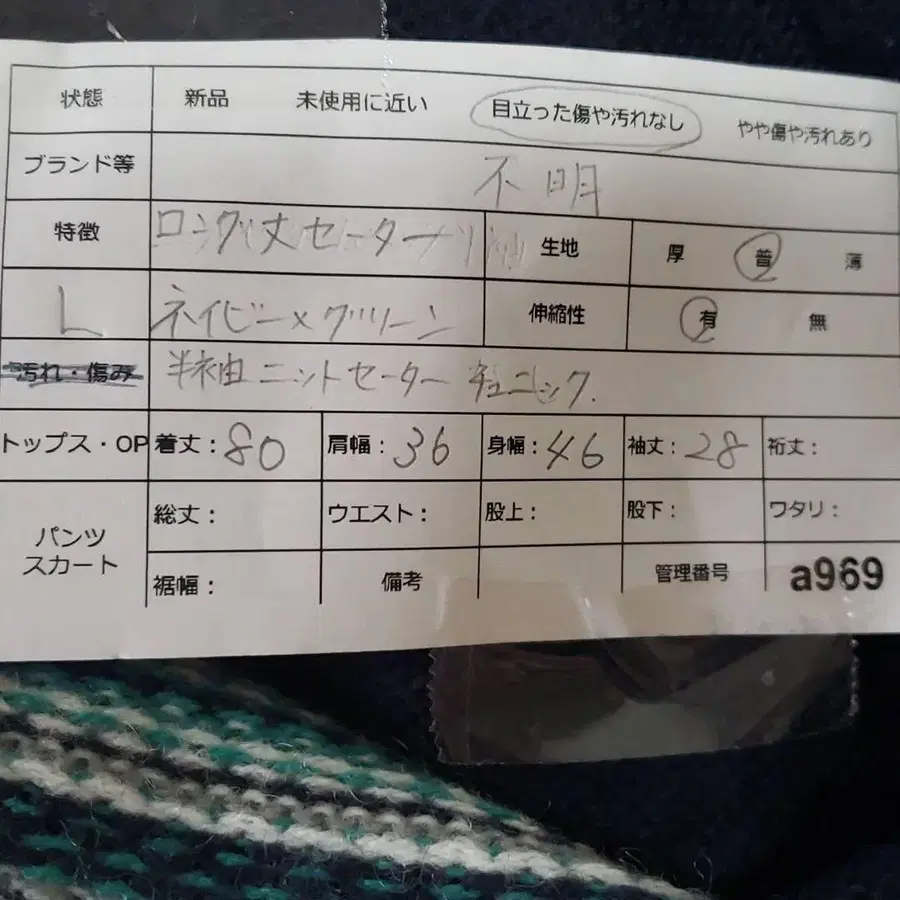 状態 新品 未使用に近い 目立った傷や汚れなし やや傷や汚れあり
ブランド等 不明
特徴 ロング丈セーター 生地 厚 普 薄
L ネイビー×グリーン 伸縮性 有 無
汚れ・傷み 半袖ニットセーター チュニック.
トップス・OP 着丈:80 肩幅:36 身幅:46 袖丈:28 裄丈:
パンツ スカート 総丈: ウエスト: 股上: 股下: ワタリ:
裾幅: 備考 管理番号 a969